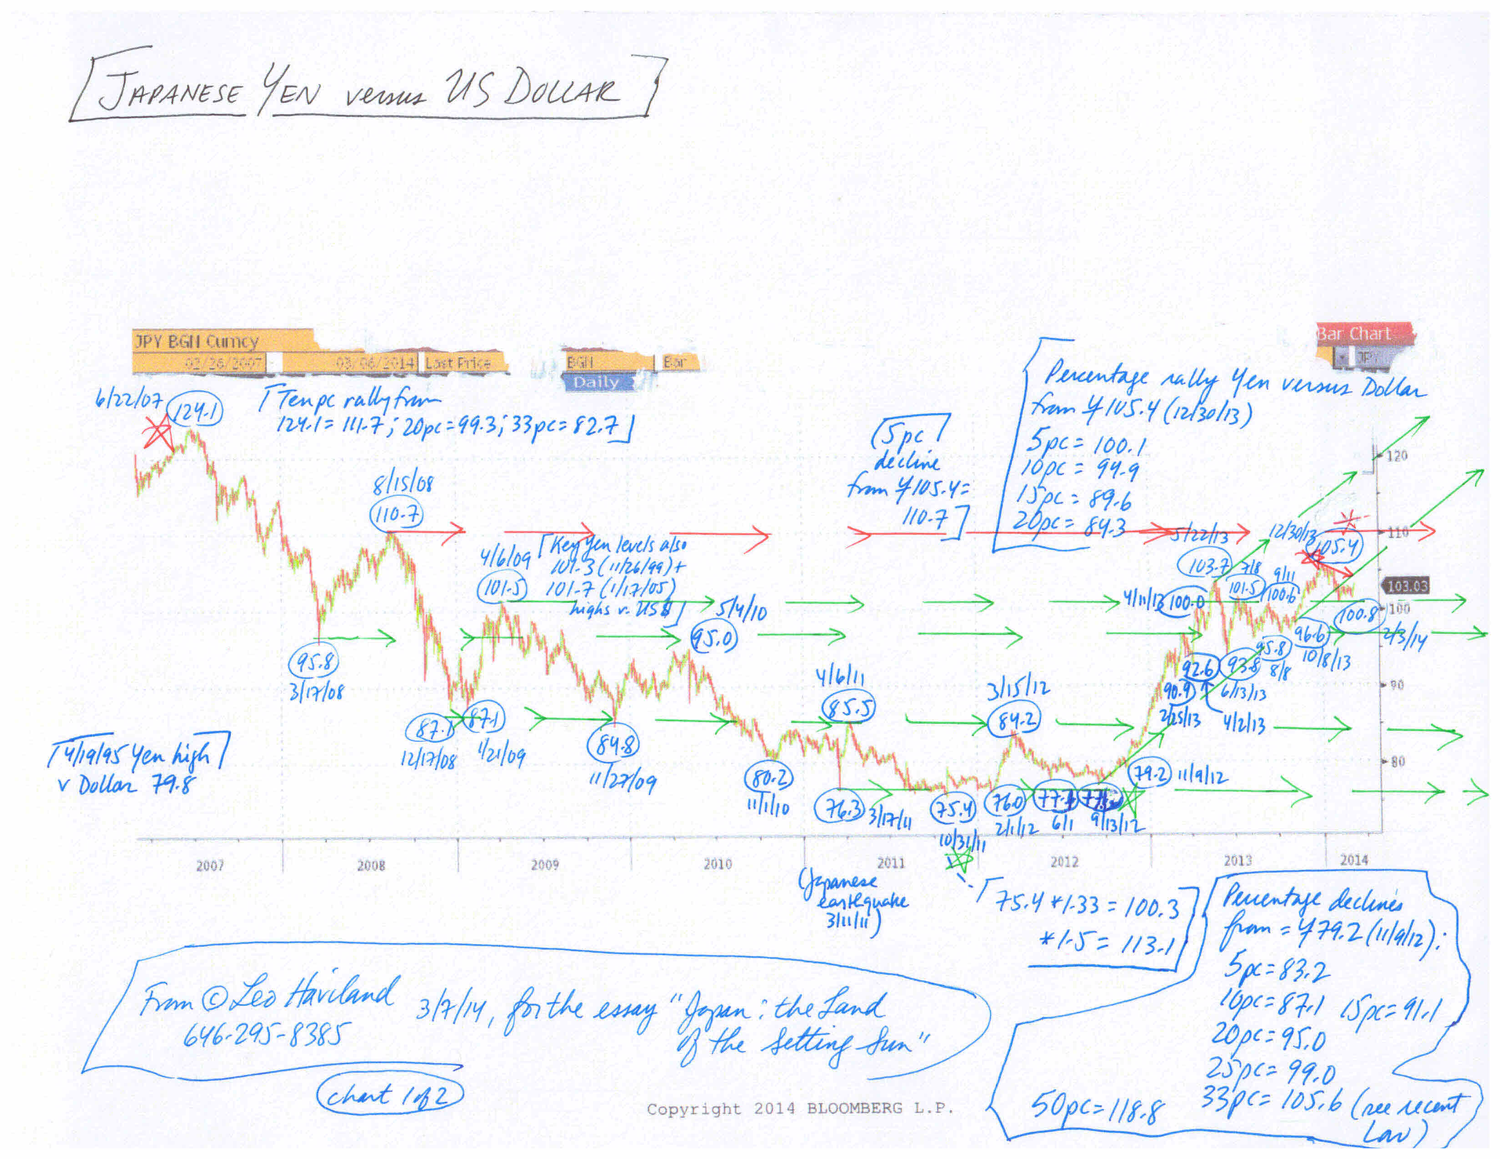 [JAPANESE YEN versus US DOLLAR]
JPY BGN Curncy
02/26/2007 03/06/2014 Last Price
BGN Bar
Daily
Bar Chart
JPY
6/22/07
124.1
[Ten pc rally from
124.1 = 111.7; 20pc = 99.3; 33pc = 82.7]
(5pc
decline
from ¥105.4 =
110.7]
Percentage rally Yen versus Dollar
from ¥105.4 (12/30/13)
5pc = 100.1
10pc = 94.9
15pc = 89.6
20pc = 84.3
8/15/08
110.7
4/6/09
101.5
[Key Yen levels also
101.3 (11/26/99) +
101.7 (1/17/05)
highs v. US$]
5/4/10
95.0
95.8
3/17/08
87.1
12/17/08
87.1
1/21/09
84.8
11/27/09
80.2
11/1/10
4/6/11
85.5
76.3
3/17/11
75.4
10/31/11
3/15/12
84.2
76.0
2/1/12
6/1
9/13/12
79.2
11/9/12
90.9
2/25/13
92.6
4/2/13
4/11/13
100.0
5/22/13
103.7
93.8
6/13/13
7/8
101.5
95.8
8/8
9/11
100.6
96.6
10/8/13
12/30/13
105.4
100.8
2/3/14
120
110
103.03
100
90
80
[4/19/95 Yen high]
v Dollar 79.8
2007 2008 2009 2010 2011 2012 2013 2014
(Japanese
earthquake
3/11/11)
[75.4 *1.33 = 100.3
*1.5 = 113.1]
Percentage declines
from = ¥79.2 (11/9/12):
5pc = 83.2
10pc = 87.1 15pc = 91.1
20pc = 95.0
25pc = 99.0
33pc = 105.6 (see recent
low)
50pc = 118.8
From © Leo Haviland 3/7/14, for the essay "Japan: the Land
646-295-8385 of the Setting Sun"
chart 1 of 2
Copyright 2014 BLOOMBERG L.P.